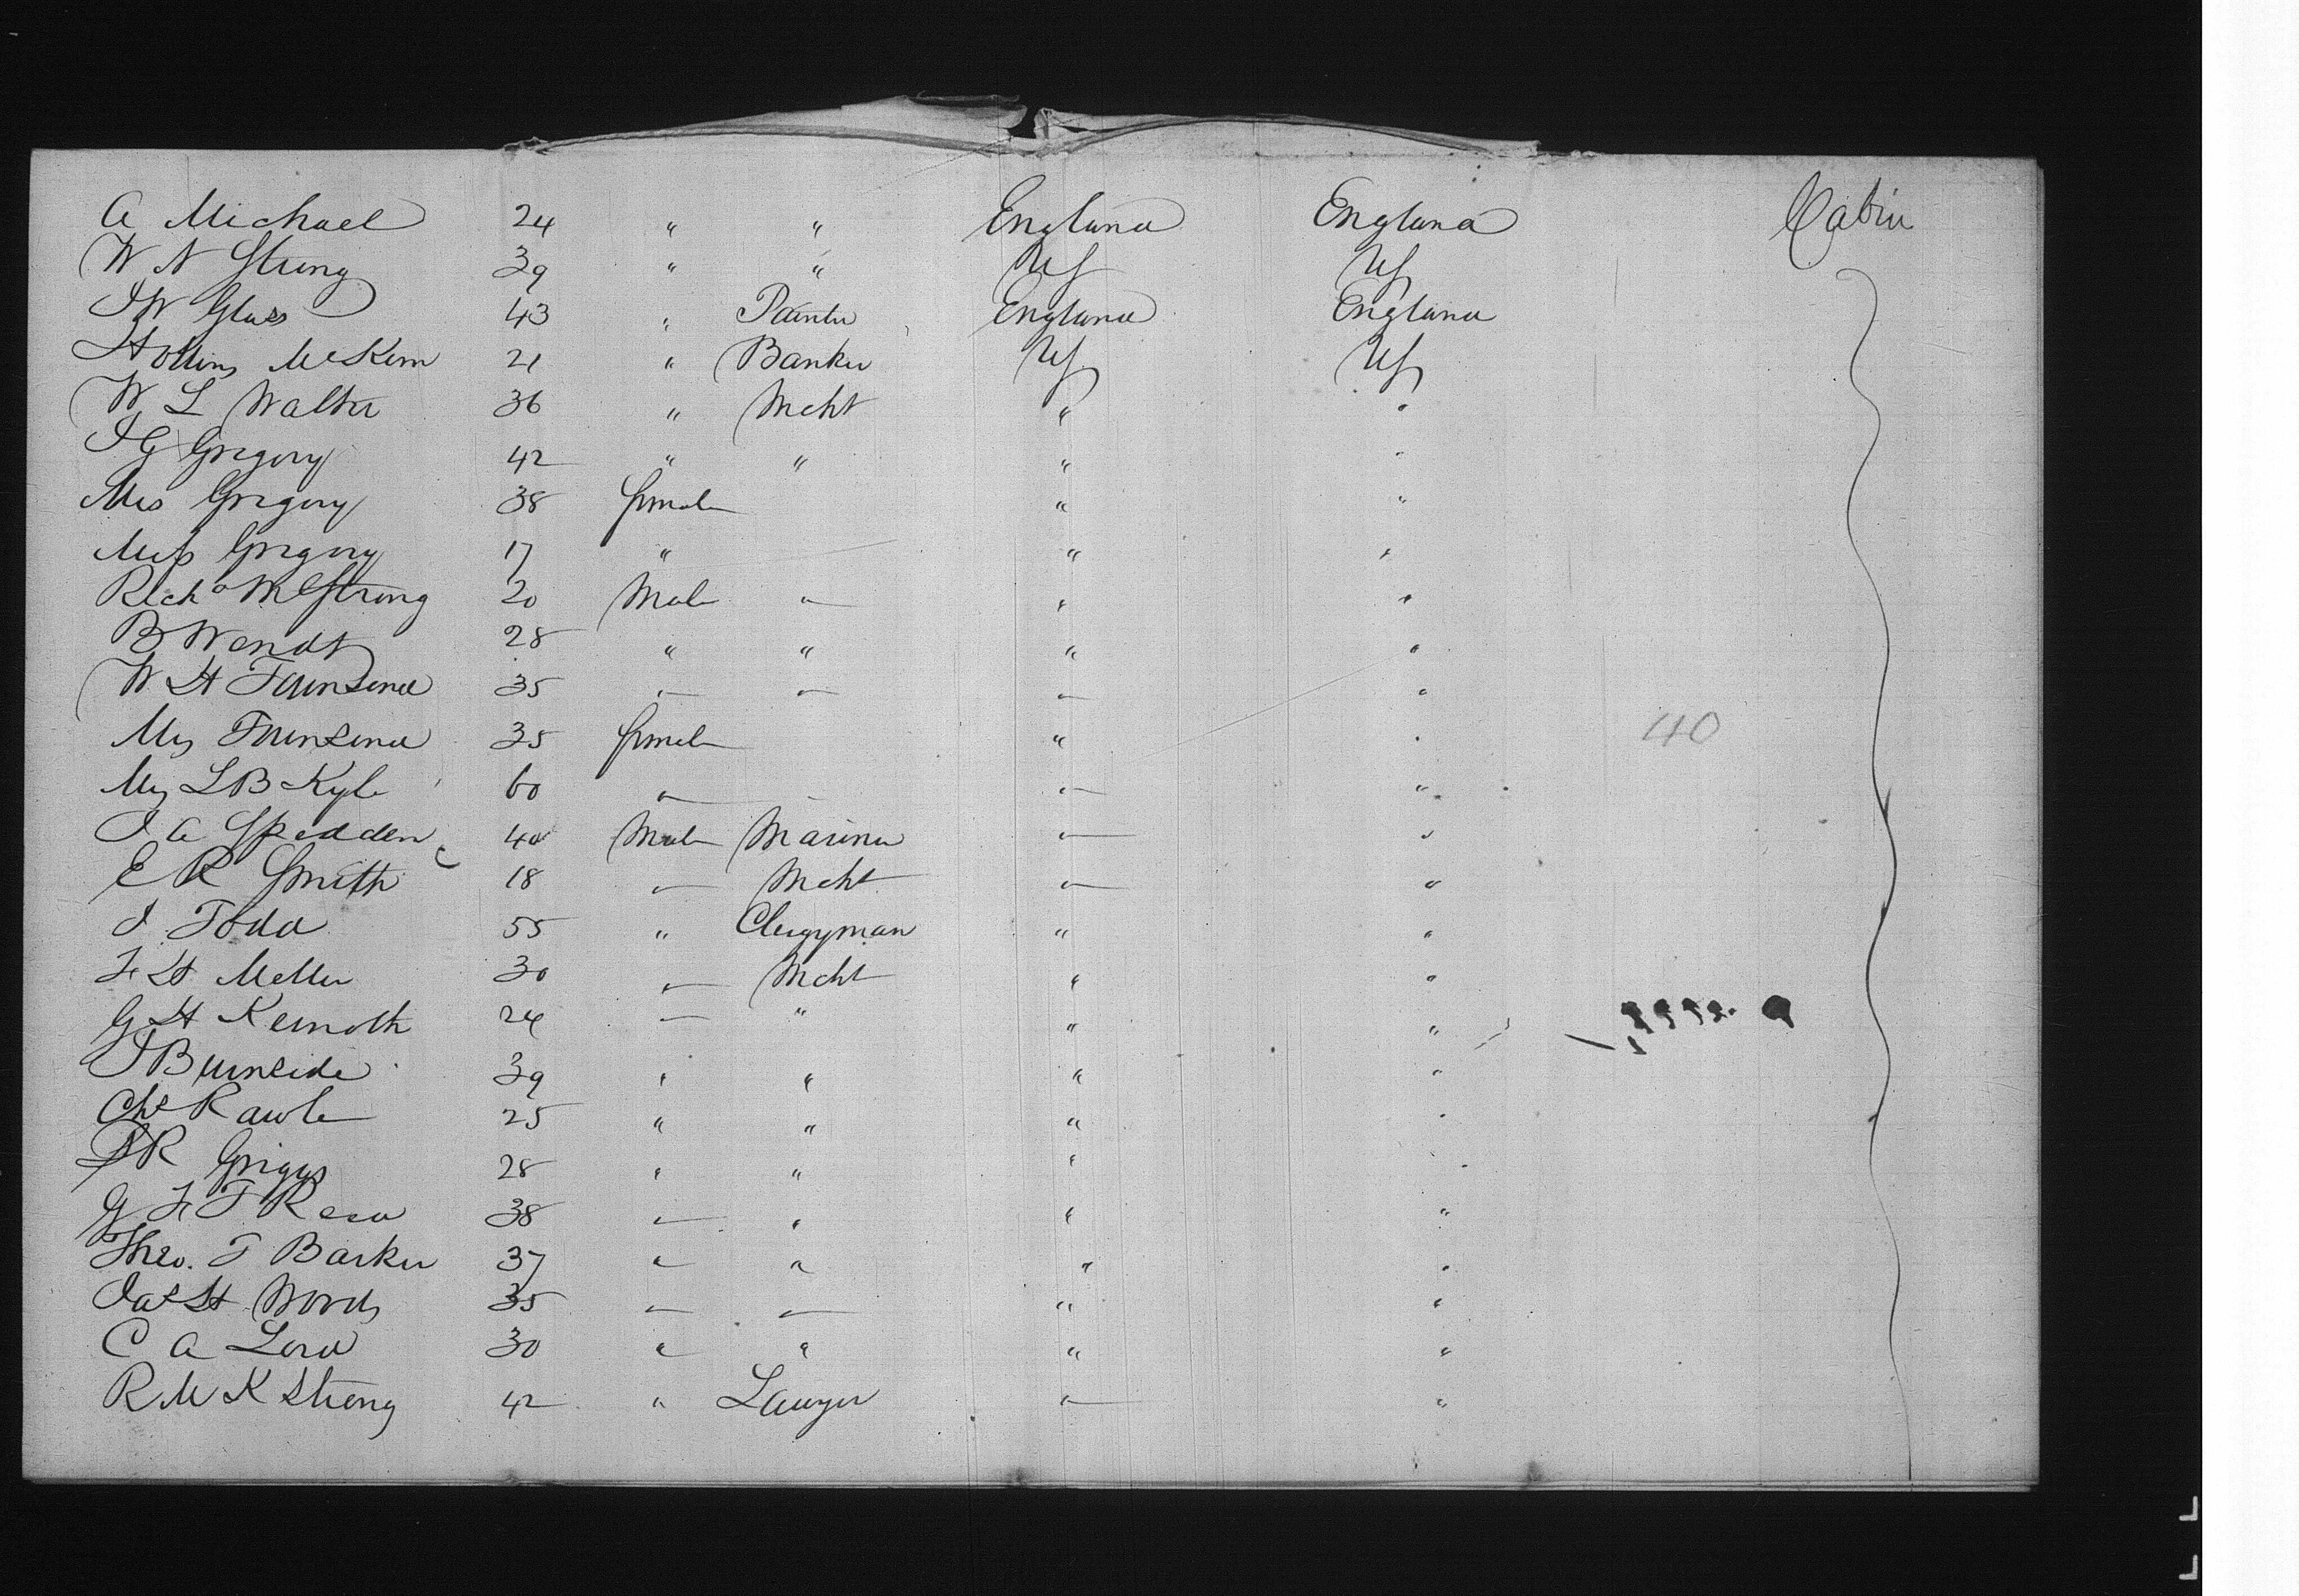 A Michael 24 " " England England Cabin
W N Strong 39 " " US US
J W Glass 43 " Painter England England
Hollins McKim 21 " Banker US US
W L Walter 36 " Mcht " "
J G Gregory 42 " " " "
Mrs Gregory 38 female " "
Miss Gregory 17 " " "
Richd Strong 20 Male " " "
B Wendt 28 " " " "
W H Townsend 35 " " " "
Mrs Townsend 35 female " " 40
Mrs L B Kyle 60 " " "
J A Spedden 40 Male Mariner " "
E R Smith 18 " Mcht " "
J Todd 55 " Clergyman " "
F H Meller 30 " Mcht " "
G H 24 " " " "
J Burnside 39 " " " "
Chs Rawle 25 " " " "
R Griggs 28 " " " "
G F T Read 38 " " " "
Theo. T Barker 37 " " " "
Jas H Woods 35 " " " "
C A Lord 30 " " " "
R M K Strong 42 " Lawyer " "